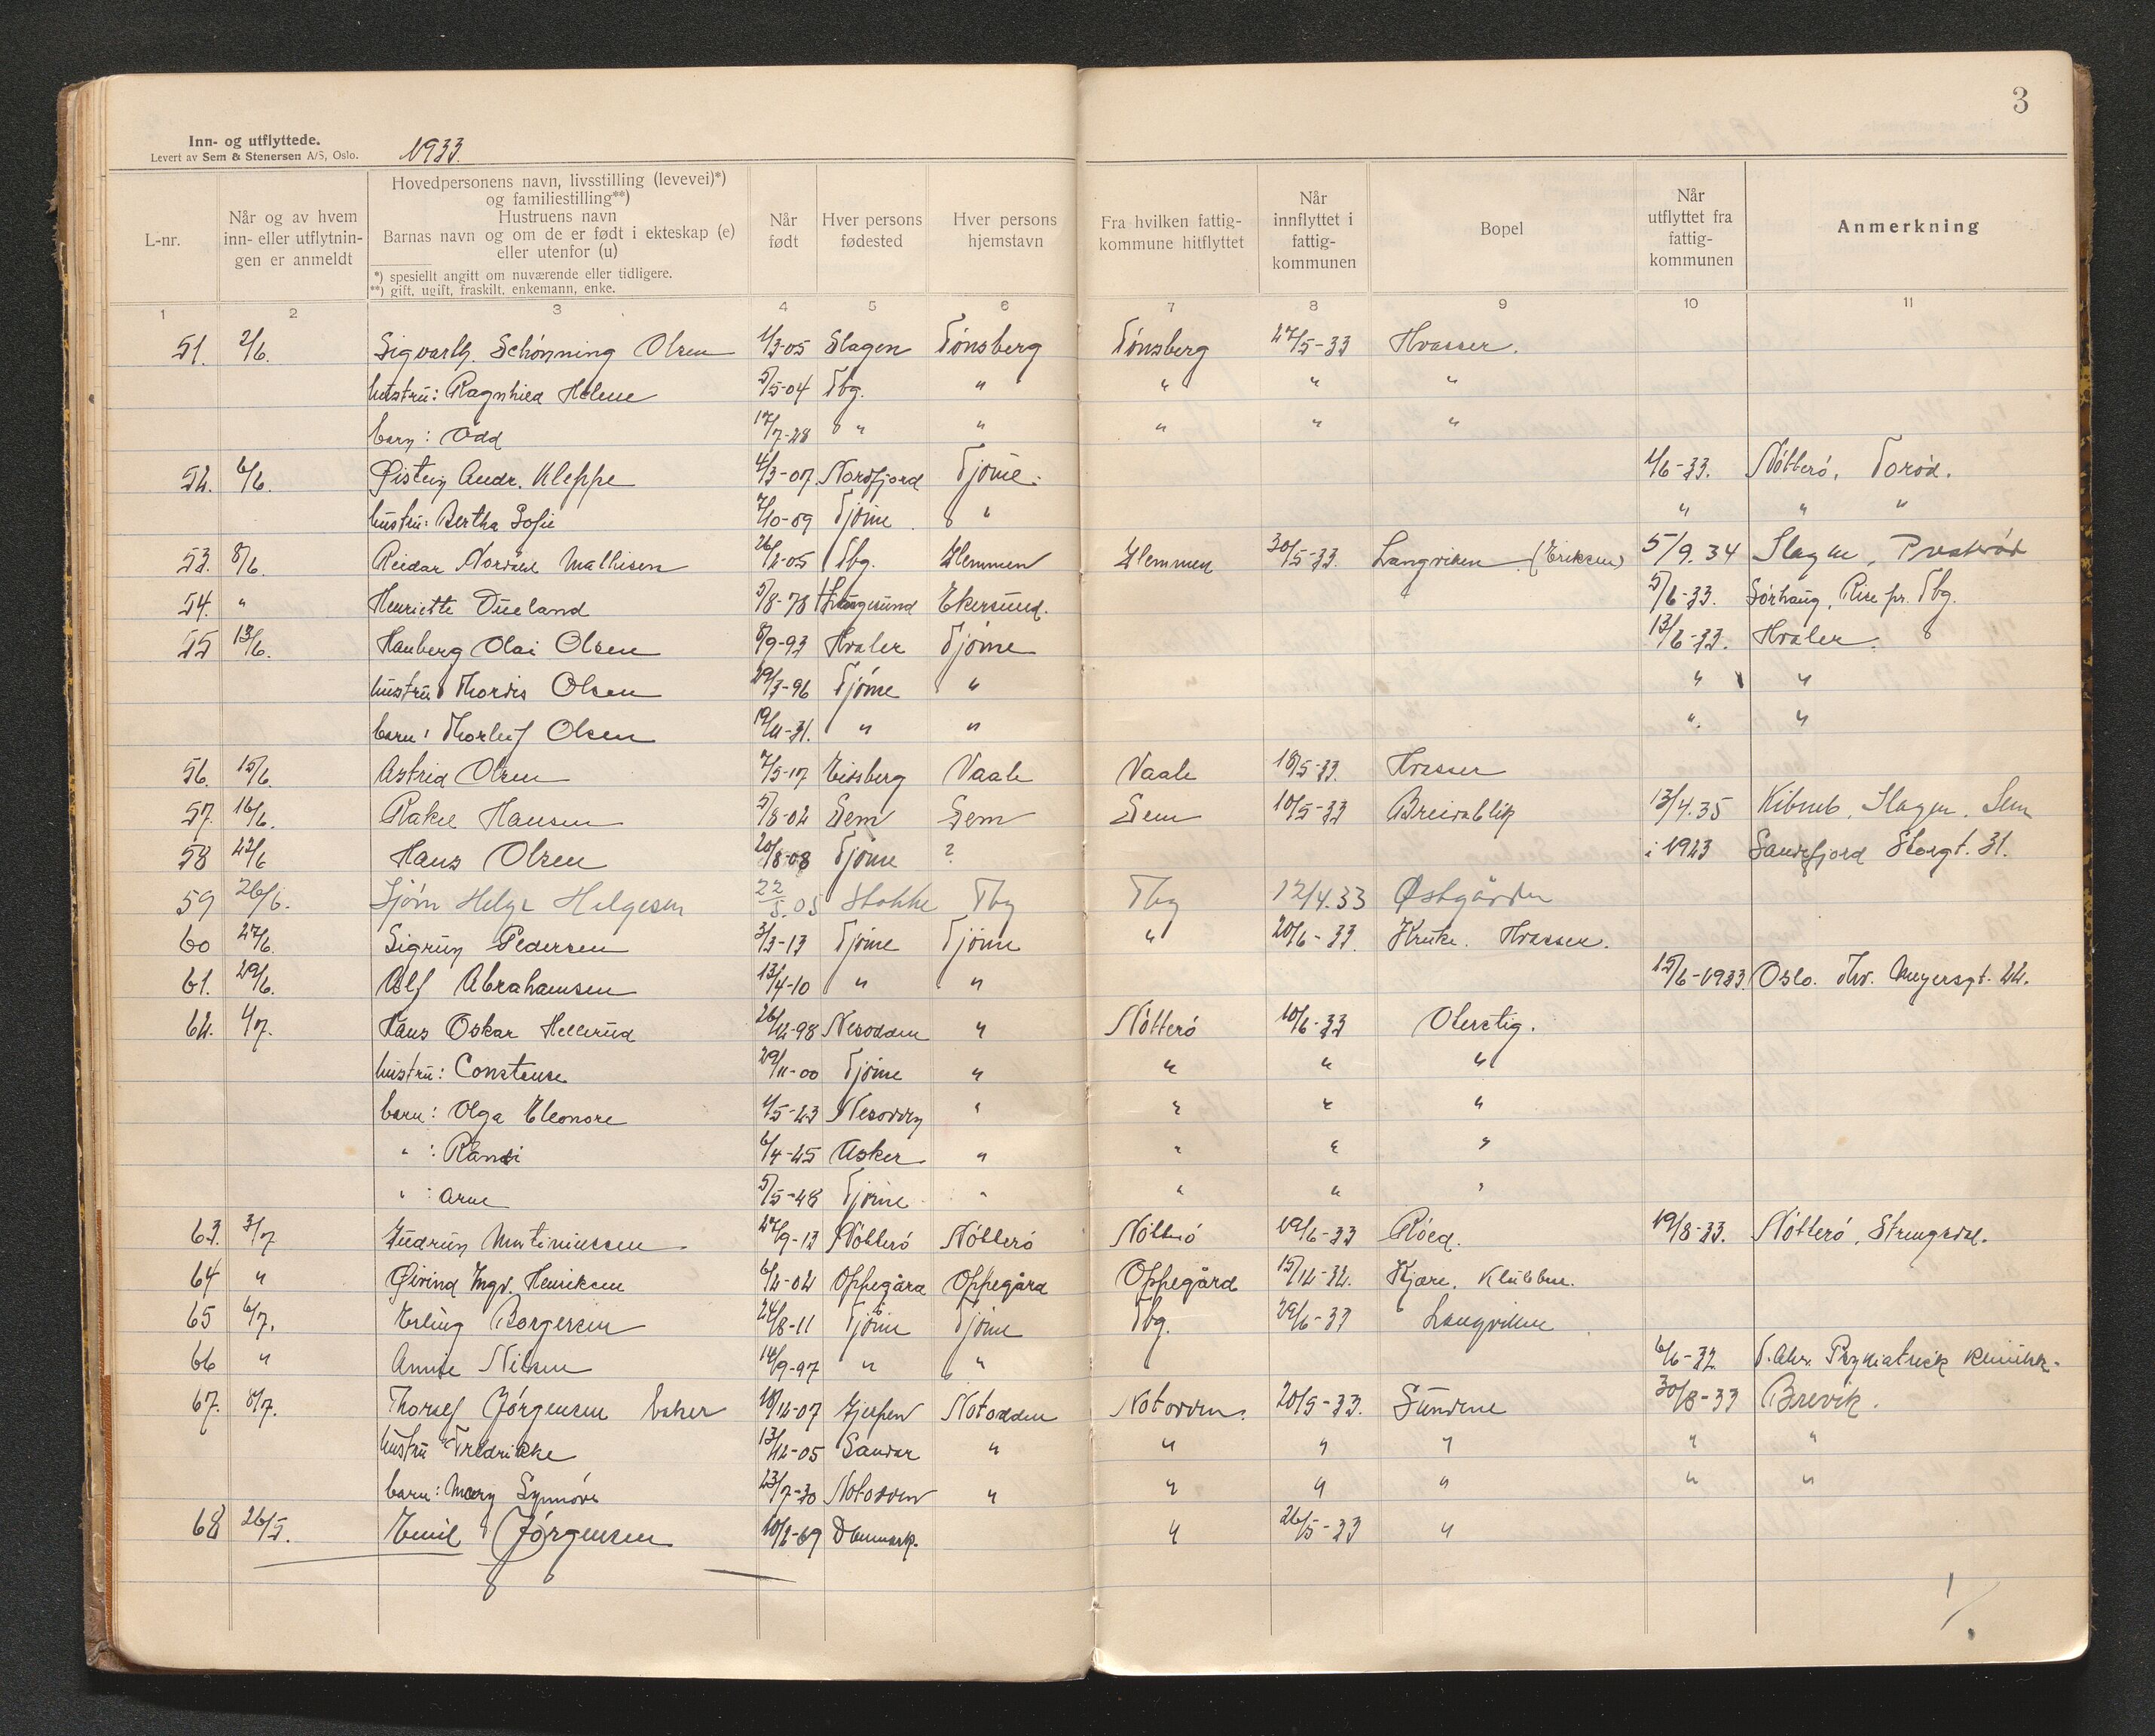 3
Inn- og utflyttede.
Levert av Sem & Stenersen A/S, Oslo.
1933.
L-nr. | Når og av hvem inn- eller utflytningen er anmeldt | Hovedpersonens navn, livsstilling (levevei)*) og familiestilling**) Hustruens navn Barnas navn og om de er født i ekteskap (e) eller utenfor (u) | Når født | Hver persons fødested | Hver persons hjemstavn | Fra hvilken fattigkommune hitflyttet | Når innflyttet i fattigkommunen | Bopel | Når utflyttet fra fattigkommunen | Anmerkning
*) spesiellt angitt om nuværende eller tidligere.
**) gift, ugift, fraskilt, enkemann, enke.
1 2 3 4 5 6 7 8 9 10 11
51. 2/6. Sigvarth. Schönning Olsen 1/3-05 Slagen Tönsberg Tönsberg 27/5-33 Hvasser.
hustru: Ragnhild Helene 5/5-04 Tbg. " " " "
barn: Odd 17/7-28 " " " " "
52. 6/6. Øistein Andr. Kleppe 4/3-07. Nordfjord Tjöme. 1/6-33. Nötterö, Toröd.
hustru: Bertha Sofie 7/10-09 Tjöme " " " "
53. 8/6. Reidar Nordahl Mathisen 26/2-05 Tbg. Glemmen Glemmen 30/5-33. Langviken (Eriksen) 5/9.34 Slagen, Presterød
54. " Henriette Dueland 5/8-78 Haugesund Ekersund. 5/6-33. Sörhaug, Rise pr. Tbg.
55 13/6. Hauberg Olai Olsen 8/9-93 Hvaler Tjöme 13/6-33. Hvaler.
hustru Thordis Olsen 29/3-96 Tjöme " " "
barn: Thorleif Olsen 19/11-31. " " " "
56. 15/6. Astrid Olsen 7/5-17 Eidsberg Vaale Vaale 18/5-33. Hvasser
57. 16/6. Rakel Hansen 5/8-02 Sem Sem Sem 10/5-33 Breidablik 13/4.35 Slagen. Sem
58 22/6 Hans Olsen 20/8-08 Tjöme ? i 1923 Sandefjord Storgt. 31.
59 26/6. Helge Helgesen 22/5.05 Stokke Tbg Tbg 12/4.33 Østgården
60 27/6. Sigrun Pedersen 3/3-13 Tjöme Tjöme " 20/6-33. Kruke. Hvasser.
61. 29/6. Alf Abrahamsen 13/4-10 " " 15/6-1933. Oslo. Thv. Meyersgt. 22.
62. 4/7. Hans Oskar Hellerud 26/12-98 Nesodden " Nötterö 10/6-33 Oterstig.
hustru: Constanse 29/11-00 Tjöme " " " "
barn: Olga Eleonore 1/5-23 Nesodden " " " "
" : Randi 6/4-25 Asker " " " "
" : Arne 5/5-28 Tjöme " " " "
63. 3/7 Gudrun Martiniussen 27/9-13 Nötterö Nötterö Nötterö 19/6-33 Röed. 19/8-33. Nötterö, Strengsdal.
64 " Øivind Ingv. Henriksen 6/2-02 Oppegård Oppegård Oppegård 15/12-32. Kjære, Klubben.
65 6/7. Erling Borgersen 24/8-11 Tjöme Tjöme Tbg. 29/6-33 Langviken
66 " Annie Nilsen 14/9-97 " " 6/6-32 Psykiatrisk Klinikk.
67. 8/7. Thorleif Jörgensen baker 18/12-07 Gjerpen Notodden Notodden. 20/5-33. Sundene 30/8-33 Brevik.
hustru Fredrikke 13/12-05 Sandar " " " " " "
barn: Mary Synnöve 23/7-30 Notodden " " " " " "
68 26/5. Emil Jörgensen 10/2-69 Denmark. " 26/5-33 "